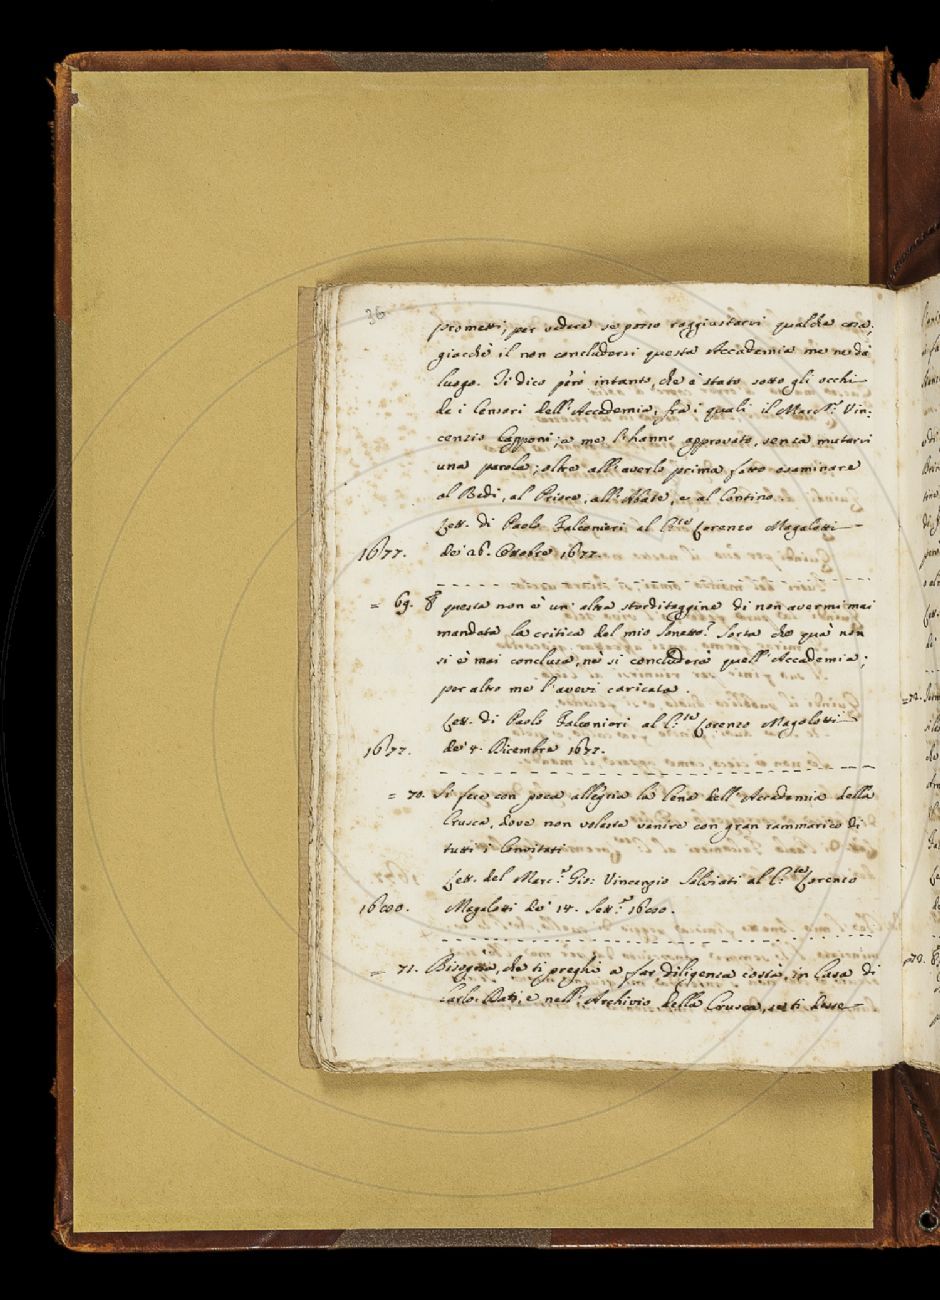 36
prometti, per vedere se posso raggiustarvi qualche cosa;
giacchè il non concludersi questa Accademia me ne dà
luogo. Ti dico però intanto, che è stato sotto gli occhi
de i Censori dell'Accademia, fra i quali il Marc.se Vin:
cenzio Capponi; e me l'hanno approvato, senza mutarvi
una parola; oltre all'averlo prima fatto esaminare
al Redi, al Priore, all'Abate, e al Contino.
Lett. di Paolo Falconieri al C.te Lorenzo Magalotti
1677. de' 26. Ottobre 1677.
= 69. E questa non è un'altra storditaggine di non avermi mai
mandata la critica del mio Sonetto? Sorta che quà non
si è mai conclusa, nè si concluderà quell'Accademia;
per altro me l'avevi caricata.
Lett. di Paolo Falconieri al C.te Lorenzo Magalotti
1677. de' 4. Dicembre 1677.
= 70. Si fece con poca allegria la Cena dell'Accademia della
Crusca, dove non voleste venire con gran rammarico di
tutti i Convitati
Lett. del Marc.e Gio: Vincenzio Salviati al C.te Lorenzo
Magalotti de' 14. Sett.e
= 71. Bisogna, che ti preghi a far diligenza costà, in Casa di
Carlo Dati, e nell'Archivio della Crusca, se ti desse